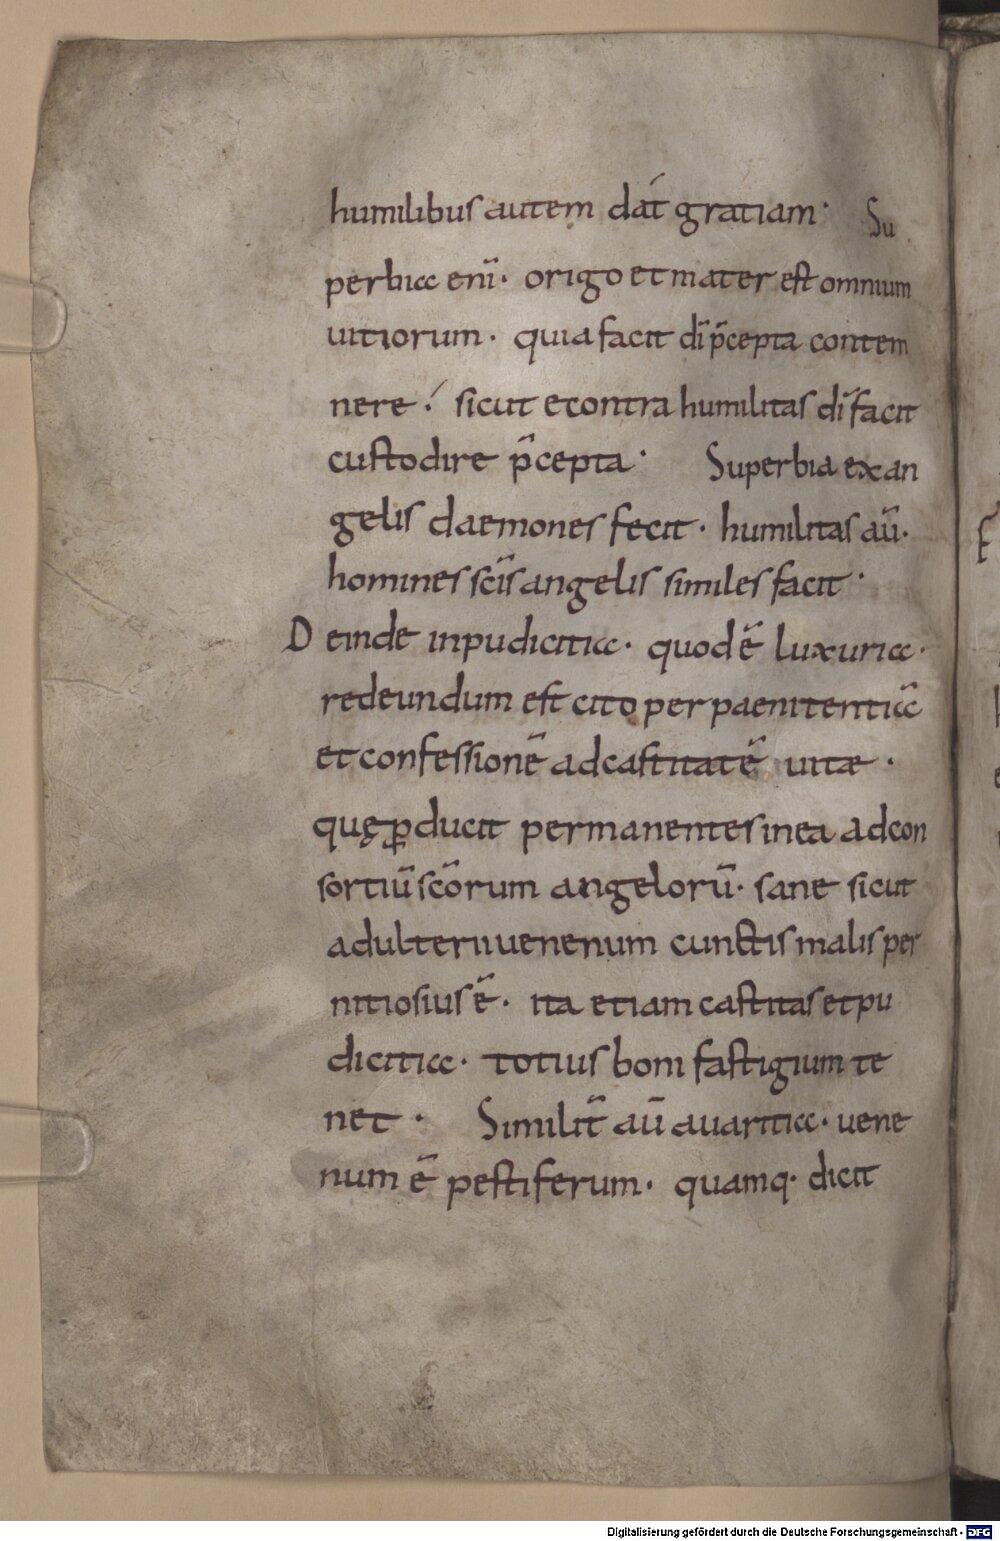 humilibus autem dat́ gratiam· Su
perbia eni̅· origo et mater est omnium
uitiorum· quia facit di̅ p̅cepta contem
nere· sicut econtra humilitas di̅ facit
custodire p̅cepta· Superbia ex an
gelis daemones fecit· humilitas au̅·
homines sc̅is angelis similes facit·
Deinde inpudicitia· quod e̅ luxuria·
redeundum est cito per paenitentia̅
et confessione̅ ad castitate̅ uitae·
quę ꝑducit permanentes in ea ad con
sortiu̅ sc̅orum angeloru̅· sane sicut
adulterii uenenum cunctis malis per
nitiosius e̅· ita etiam castitas et pu
dicitia· totius boni fastigium te
net· Similit̅ au̅ auaritia· uene
num e̅ pestiferum· quamq· dicit
Digitalisierung gefördert durch die Deutsche Forschungsgemeinschaft - DFG